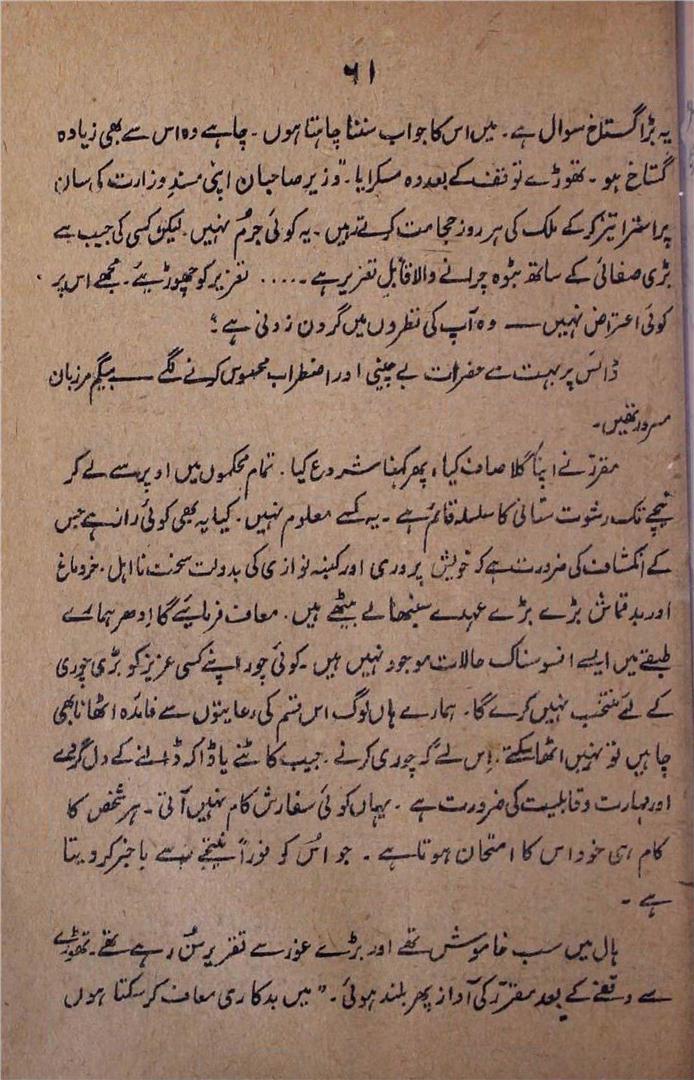 ۶۱
یہ بڑا گستاخ سوال ہے۔ میں اس کا جواب سننا چاہتا ہوں۔ چاہے وہ اس سے بھی زیادہ
گستاخ ہو۔ تھوڑے توقف کے بعد وہ مسکرایا۔ "وزیر صاحبان اپنی مسندِ وزارت کی سان
پر استرا تیز کر کے ملک کی ہر روز حجامت کرتے ہیں۔ یہ کوئی جرم نہیں۔ لیکن کسی کی جیب سے
بڑی صفائی کے ساتھ بٹوہ چرانے والا قابلِ تعزیر ہے۔..... تعزیر کو چھوڑیئے۔ مجھے اس پر
کوئی اعتراض نہیں — وہ آپ کی نظروں میں گردن زدنی ہے؟
ڈائس پر بہت سے حضرات بے چینی اور اضطراب محسوس کرنے لگے — بیگم مرزبان
مسرور تھیں۔
مقرر نے اپنا گلا صاف کیا، پھر کہنا شروع کیا۔ تمام محکموں میں اوپر سے لے کر
نیچے تک رشوت ستانی کا سلسلہ قائم ہے۔ یہ کسے معلوم نہیں۔ کیا یہ بھی کوئی راز ہے جس
کے انکشاف کی ضرورت ہے کہ خویش پروری اور کنبہ نوازی کی بدولت سخت نا اہل۔ خر دماغ
اور بد قماش بڑے بڑے عہدے سنبھالے بیٹھے ہیں۔ معاف فرمایئے گا اِدھر ہمارے
طبقے میں ایسے افسوسناک حالات موجود نہیں ہیں۔ کوئی چور اپنے کسی عزیز کو بڑی چوری
کے لئے منتخب نہیں کرے گا۔ ہمارے ہاں لوگ اس قسم کی رعایتوں سے فائدہ اٹھانا بھی
چاہیں تو نہیں اٹھا سکتے۔ اِس لئے کہ چوری کرنے۔ جیب کاٹنے یا ڈاکہ ڈالنے کے دل گردے
اور مہارت و قابلیت کی ضرورت ہے۔ یہاں کوئی سفارش کام نہیں آتی۔ ہر شخص کا
کام ہی خود اس کا امتحان ہوتا ہے۔ جو اُس کو فوراً نتیجے سے باخبر کر دیتا
ہے۔
ہال میں سب خاموش تھے اور بڑے غور سے تقریر سُن رہے تھے۔ تھوڑے
سے وقفے کے بعد مقرر کی آواز پھر بلند ہوئی۔ "میں بدکاری معاف کر سکتا ہوں